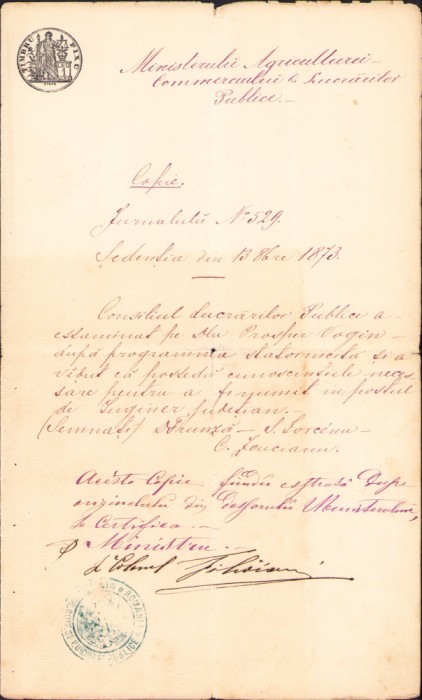 TIMBRU FIXU
Ministerulŭ Agriculturei
Commerciului & Lucrărilor
Publice.—
Copie.
Jurnalulŭ No 529.
Ședenția din 13 8bre 1873.
Consiliul Lucrărilor Publice a
essaminat pe Dlu Prosper Vogin
după programma statornicită și a
vĕdut că posedă cunoscințele neces-
sare pentru a fi numit in postul
de Inginer Județian.
(Semnați) Frunză — S. Sorcénu
C.
Acéstă Copie fiindŭ esstrasă Dupe
originalulŭ din Ministerului,
se Certifica.—
Ministru.—
p
Colonel
ROMANIA
PUBLICE